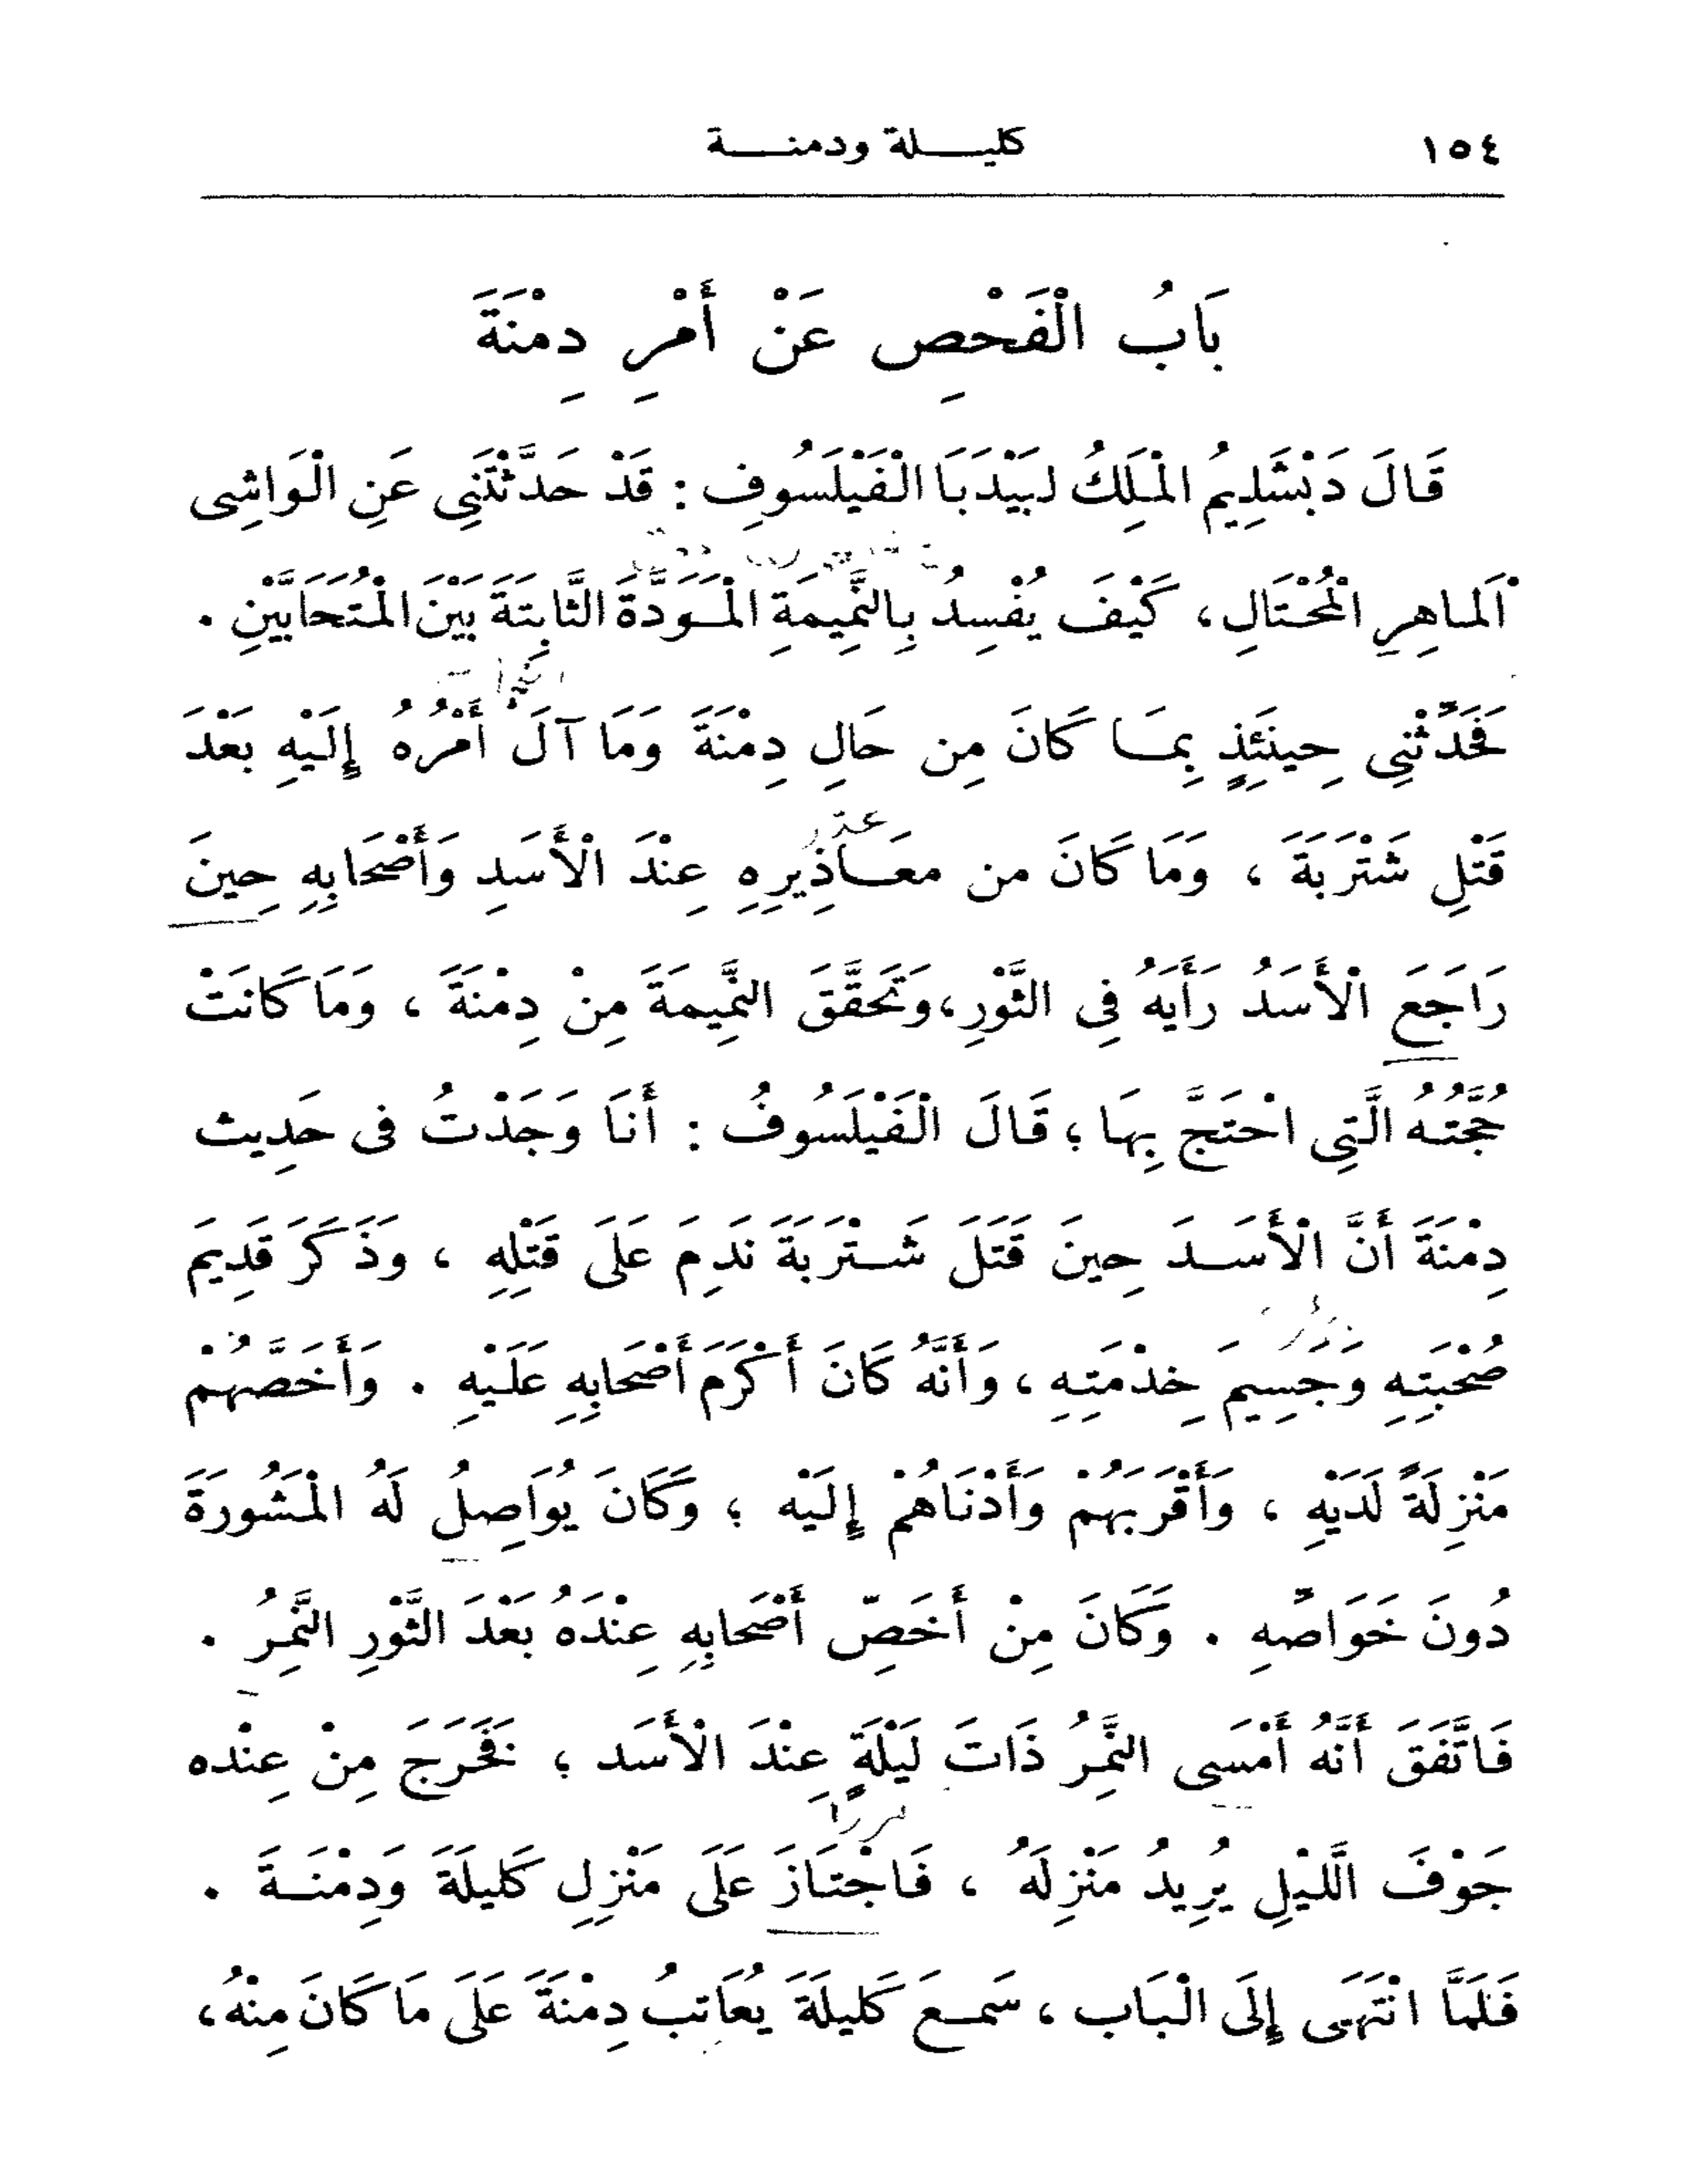 ١٥٤ كليلة ودمنة
بَابُ الْفَحْصِ عَنْ أَمْرِ دِمْنَةَ
قَالَ دَبْشَلِيمُ الْمَلِكُ لبَيْدَبَا الْفَيْلَسُوفِ : قَدْ حَدَّثْتَنِى عَنِ الْوَاشِى
اَلْماهِرِ الْمُحْتَالِ، كَيْفَ يُفْسِدُ بِالنَّمِيمَةِ الْمَوَدَّةَ الثَّابِتَةَ بَيْنَ الْمُتَحَابَّيْنِ .
فَحَدِّثْنِى حِينَئِذٍ بِمَا كَانَ مِن حَالِ دِمْنَةَ وَمَا آلَ أَمْرُهُ إِلَيْهِ بَعْدَ
قَتْلِ شَتْرَبَةَ ، وَمَا كَانَ من معَاذِيرِهِ عِنْدَ الْأَسَدِ وَأَصْحَابِهِ حِينَ
رَاجَعَ الْأَسَدُ رَأْيَهُ فِى الثَّوْرِ، وَتَحَقَّقَ النَّمِيمَةَ مِنْ دِمْنَةَ ، وَمَا كَانَتْ
حُجَّتُهُ الَّتِى احْتَجَّ بِهَا ؛ قَالَ الْفَيْلَسُوفُ : أَنَا وَجَدْتُ فى حَدِيث
دِمْنَةَ أَنَّ الْأَسَدَ حِينَ قَتَلَ شَتْرَبَةَ نَدِمَ عَلَى قَتْلِهِ ، وَذَكَرَ قَدِيمَ
صُحْبَتِهِ وَجَسِيمَ خِدْمَتِهِ ، وَأَنَّهُ كَانَ أَكْرَمَ أَصْحَابِهِ عَلَيْهِ . وَأَخَصَّهُمْ
مَنْزِلَةً لَدَيْهِ ، وَأَقْرَبَهُمْ وَأَدْنَاهُمْ إِلَيْه ؛ وَكَانَ يُوَاصِلُ لَهُ الْمَشُورَةَ
دُونَ خَوَاصِّهِ . وَكَانَ مِنْ أَخَصِّ أَصْحَابِهِ عِنْدَهُ بَعْدَ الثَّوْرِ النَّمِرُ .
فَاتَّفَقَ أَنَّهُ أَمْسَى النَّمِرُ ذَاتَ لَيْلَةٍ عِنْدَ الْأَسَد ؛ فَخَرَجَ مِنْ عِنْده
جَوْفَ الَّليْلِ يُرِيدُ مَنْزِلَهُ ، فَاجْتَازَ عَلَى مَنْزِلِ كَلِيلَةَ وَدِمْنَةَ .
فَلَمَّا انْتَهَى إِلَى الْبَاب ، سَمِعَ كَلِيلَةَ يُعَاتبُ دِمْنَةَ عَلَى مَا كَانَ مِنْهُ،